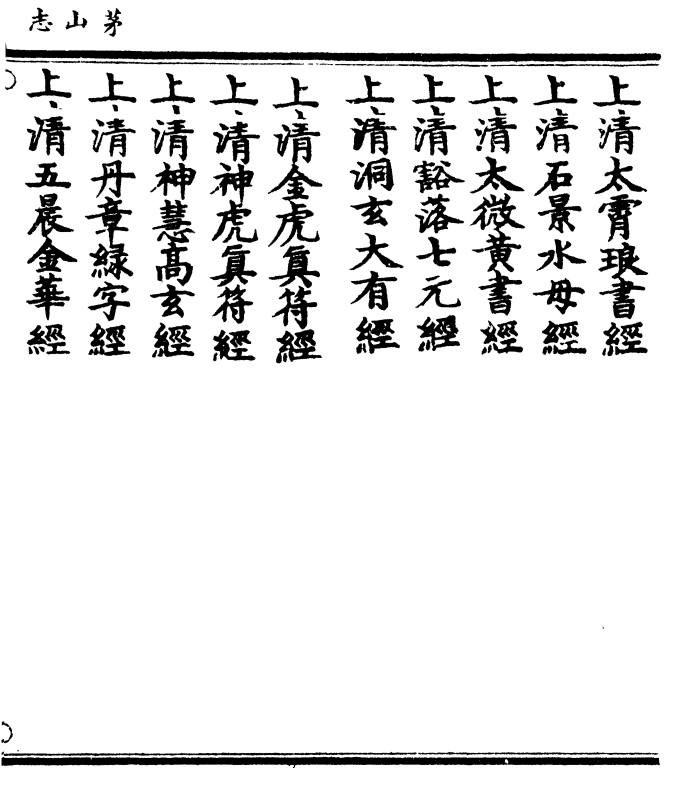 茅山志
上清太霄琅書經
上清石景水母經
上清太微黃書經
上清豁落七元經
上清洞玄大有經
上清金虎眞符經
上清神虎眞符經
上清神慧髙玄經
上清丹章緑字經
上清五晨金華經